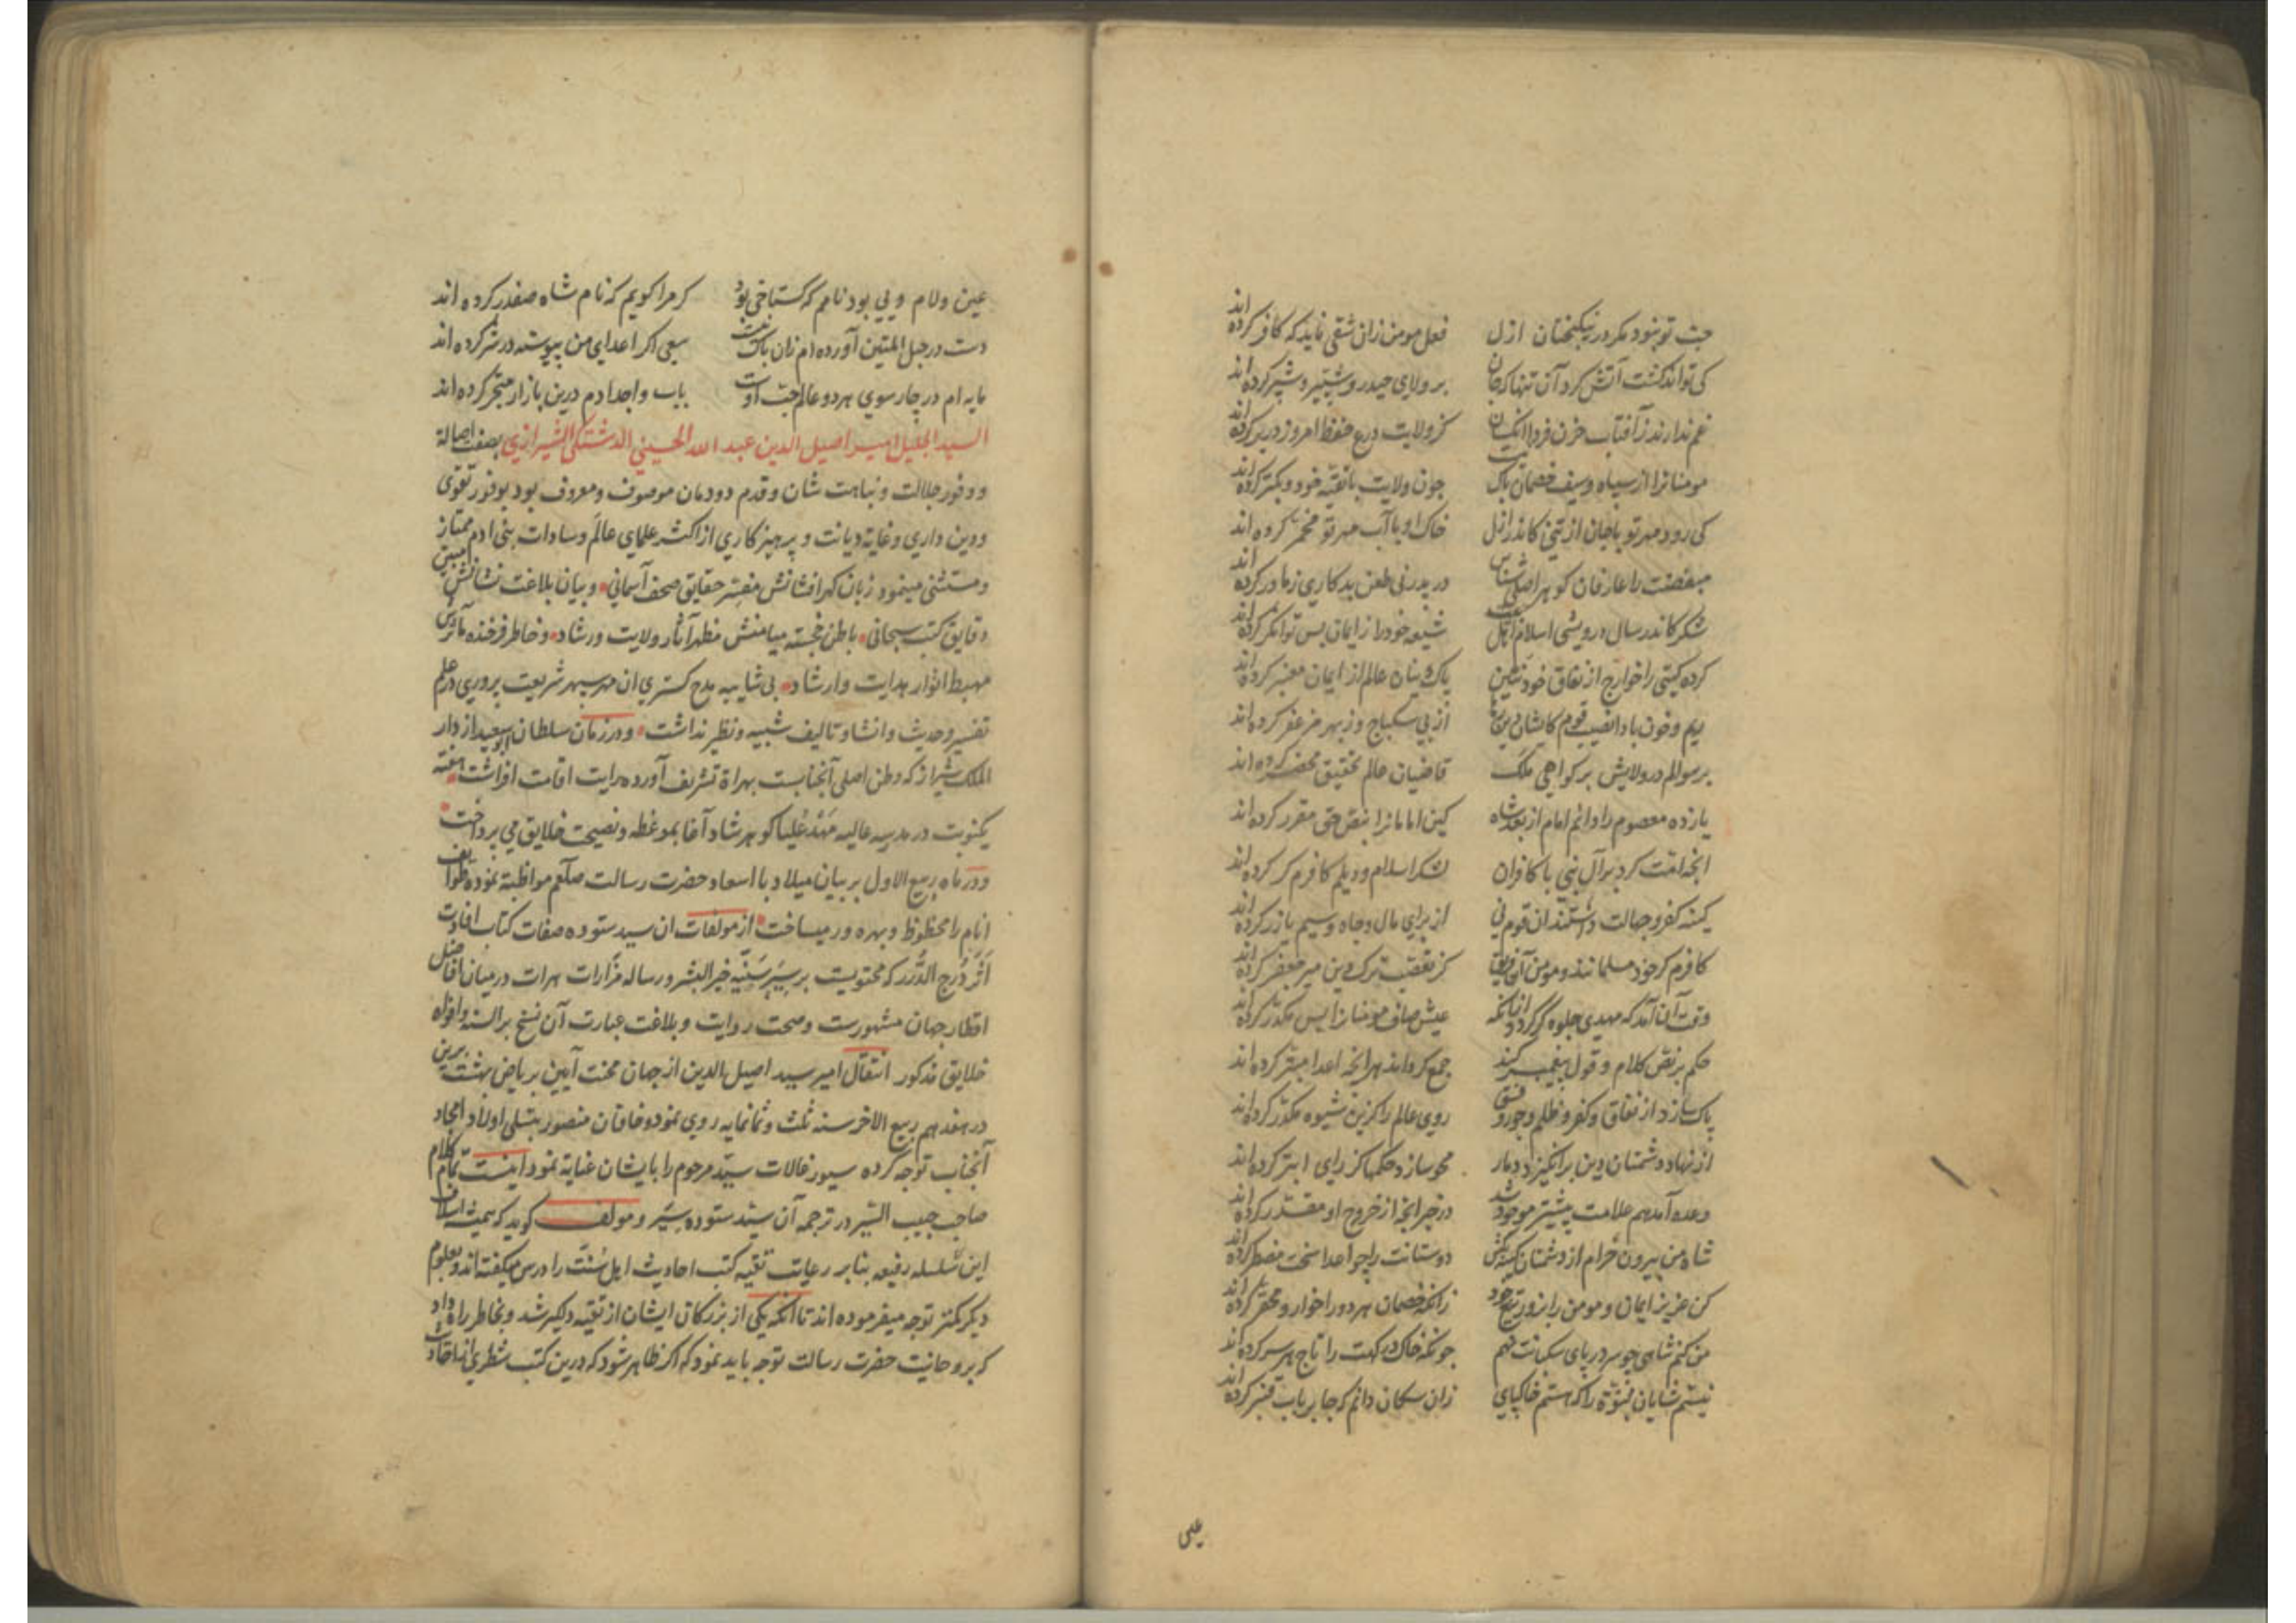 حب تو نبود مگر در نیکبختان ازل فعل مومن زان شقی ناید که کافر کرده اند
کی تواند کشت آتش کرد آن تنها که جان بر ولای حیدر و شبیر و شبر کرده اند
غم ندارند ز آفتاب حزن فردا آنکسان کز ولایت درع حفظ امروز در بر کرده اند
مومنانرا از سپاه و سیف خصمان باک نیست چون ولایت با تقیه خود و بکتر کرده اند
کی رود مهر تو با جان از تنی کاندر ازل خاک او با آب مهر تو مخمر کرده اند
مبغضت را عارفان کوهر اصلی شناس در پدر نی طعن بدکاری ز مادر کرده اند
شکر کاندر سال درویشی اسلام اهل بیت شیعه خود را از ایمان بس توانگر کرده اند
کرده کیتی را خوارج از نفاق خود نتین پاک دینان عالم از ایمان معنبر کرده اند
ریم و خون بادا نصیب قوم کایشان دین از پی سکباج و ز بهر مزعفر کرده اند
بر سوالم در ولایش بر کواهی ملک قاضیان عالم تحقیق محضر کرده اند
یازده معصوم را دانم امام از بعد شاه کین امامانرا بنص حق مقرر کرده اند
آنچه امت کرد بر آل نبی با کافران لشکر اسلام و دیلم کافرم کر کرده اند
کینه کفر و جهالت داشتند ان قوم نی از برای مال و جاه و سیم یا زر کرده اند
کافرم کر خود مسلمانند و مومن آن فریق کز تعصب ترک دین میر جعفر کرده اند
وقت آن آمد که مهدی جلوه گر گردد از آنکه عیش صاف مومنان را بس مکدر کرده اند
حکم بر نص کلام و قول پیغمبر کند جمع کرداند هر آنچه اعدا مبتر کرده اند
پاک سازد از نفاق و کفر و ظلم و جور و فسق روی عالم را کزین شیوه مکدر کرده اند
از نهاد دشمنان دین برانگیزد دمار محو سازد حکمها کز رای ابتر کرده اند
وعده آمد هم علامت پیشتر موجود شد در خبر آنچه از خروج او مقدر کرده اند
شاه من بیرون خرام از دشمنان کینه کش دوستانت را چو اعدا سخت مضطر کرده اند
کن عزیز ایمان و مومن را بزور تیغ خود زانکه خصمان هر دو را خوار و محقر کرده اند
من کنم شاهی چو سر در پای سکانت نهم چونکه خاک درکهت را تاج هر سر کرده اند
نیستم شایان مبثوثه را که هستم خاکپای زان سکان دانم که جا بر باب قنبر کرده اند
عین
عین ولام و یی بود نامم که کستاخی بود کر مرا کویم که نام شاه صفدر کرده اند
دست در حبل المتین آورده ام زان باک نیست سعی اکر اعدای من پیوسته در شر کرده اند
مایه ام در چارسوی هر دو عالم حب اوست باب و اجدادم درین بازار متجر کرده اند
السید الجلیل امیر اصیل الدین عبد الله الحسینی الدشتکی الشیرازی بصفت اصالة
و وفور جلالت و نباهت شان و قدم دودمان موصوف و معروف بود بوفور تقوی
و دین داری و غایة دیانت و پرهیزکاری از اکثر علمای عالم و سادات بنی ادم ممتاز
و مستثنی مینمود زبان کهرافشانش مفسر حقایق صحف آسمانی و بیان بلاغت نشانش مبین
دقایق کتب سبحانی باطن خجسته میامنش مظهر آثار ولایت و رشاد و خاطر فرخنده مآثرش
مهبط انوار هدایت و ارشاد بی شایبه مدح کستری ان مهر سپهر شریعت پروری در علم
تفسیر و حدیث و انشا و تالیف شبیه و نظیر نداشت و در زمان سلطان ابو سعید از دار
الملک شیراز که وطن اصلی آنجنابست بهراة تشریف آورده رایت اقامت افراشت هفته
یکنوبت در مدرسه عالیه مهد علیا کوهرشاد آغا بموعظه و نصیحت خلایق می پرداخت
و در ماه ربیع الاول بر بیان میلاد با اسعاد حضرت رسالت صلعم مواظبة نموده طوایف
انام را محظوظ و بهره ور میساخت از مولفات ان سید ستوده صفات کتاب افادت
اثر درج الدرر که محتویست بر سیر سنیه خیر البشر و رساله مزارات هرات در میان افاضل
اقطار جهان مشهورست و صحت روایت و بلاغت عبارت آن نسخ بر السنه و افواه
خلایق مذکور انتقال امیر سید اصیل الدین از جهان محنت آیین بریاض بهشت برین
در هفدهم ربیع الاخر سنه ثلث و ثمانمایه روی نمود و خاقان منصور بتسلی اولاد امجاد
آنجناب توجه کرده سیورغالات سید مرحوم را بایشان عنایة نمود اینست تمام کلام
صاحب حبیب السیر در ترجمه آن سید ستوده سیر و مولف کوید که همیشه اسلاف
این سلسله رفیعه بنابر رعایت تقیه کتب احادیث اهل سنت را درس میگفته اند و بعلوم
دیکر کمتر توجه میفرموده اند تا آنکه یکی از بزرکان ایشان از تقیه دلگیر شد و بخاطر راه داد
که بروحانیت حضرت رسالت توجه باید نمود که اکر ظاهر شود که درین کتب شطری